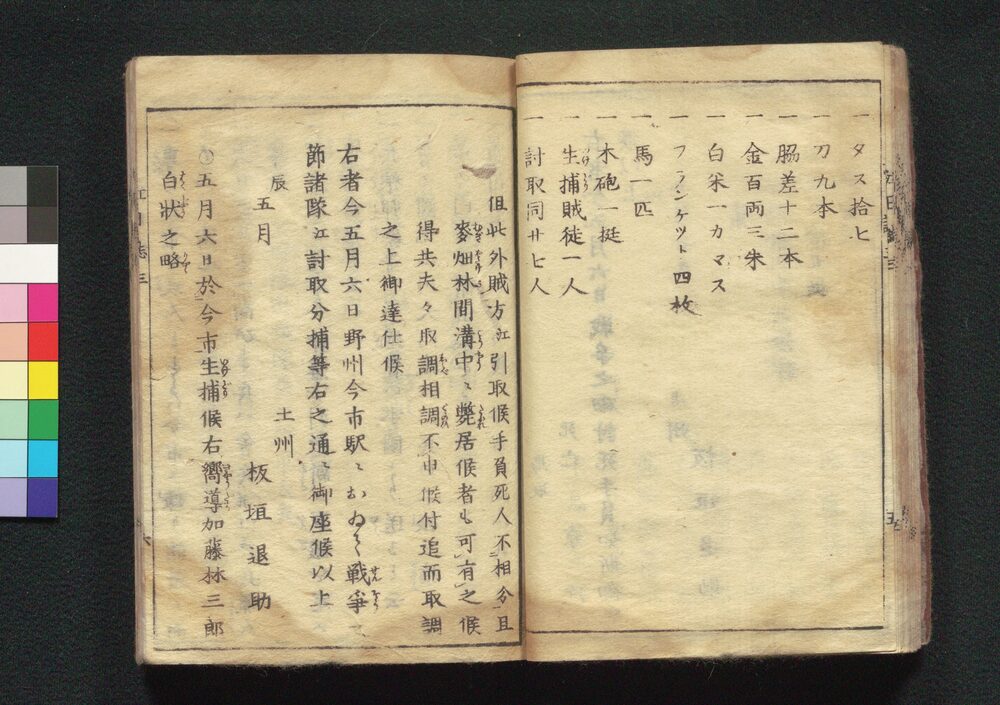 一 タス拾ヒ
一 刀九本
一 脇差十二本
一 金百両三朱
一 白米一カマス
一 フランケツト四枚
一 馬一匹
一 木砲一挺
一 生捕賊徒一人
一 討取同廿七人
但此外賊方江引取候手負死人不相分且
麥畑林間溝中ニ斃居候者も可有之候
得共夫々取調相調不申候付追而取調
之上御達仕候
右者今五月六日野州今市駅ニおゐて戦爭之
節諸隊江討取分捕等右之通ニ御座候以上
辰五月
土州
板垣退助
○五月六日於今市生捕候右嚮導加藤林三郎
白状之略